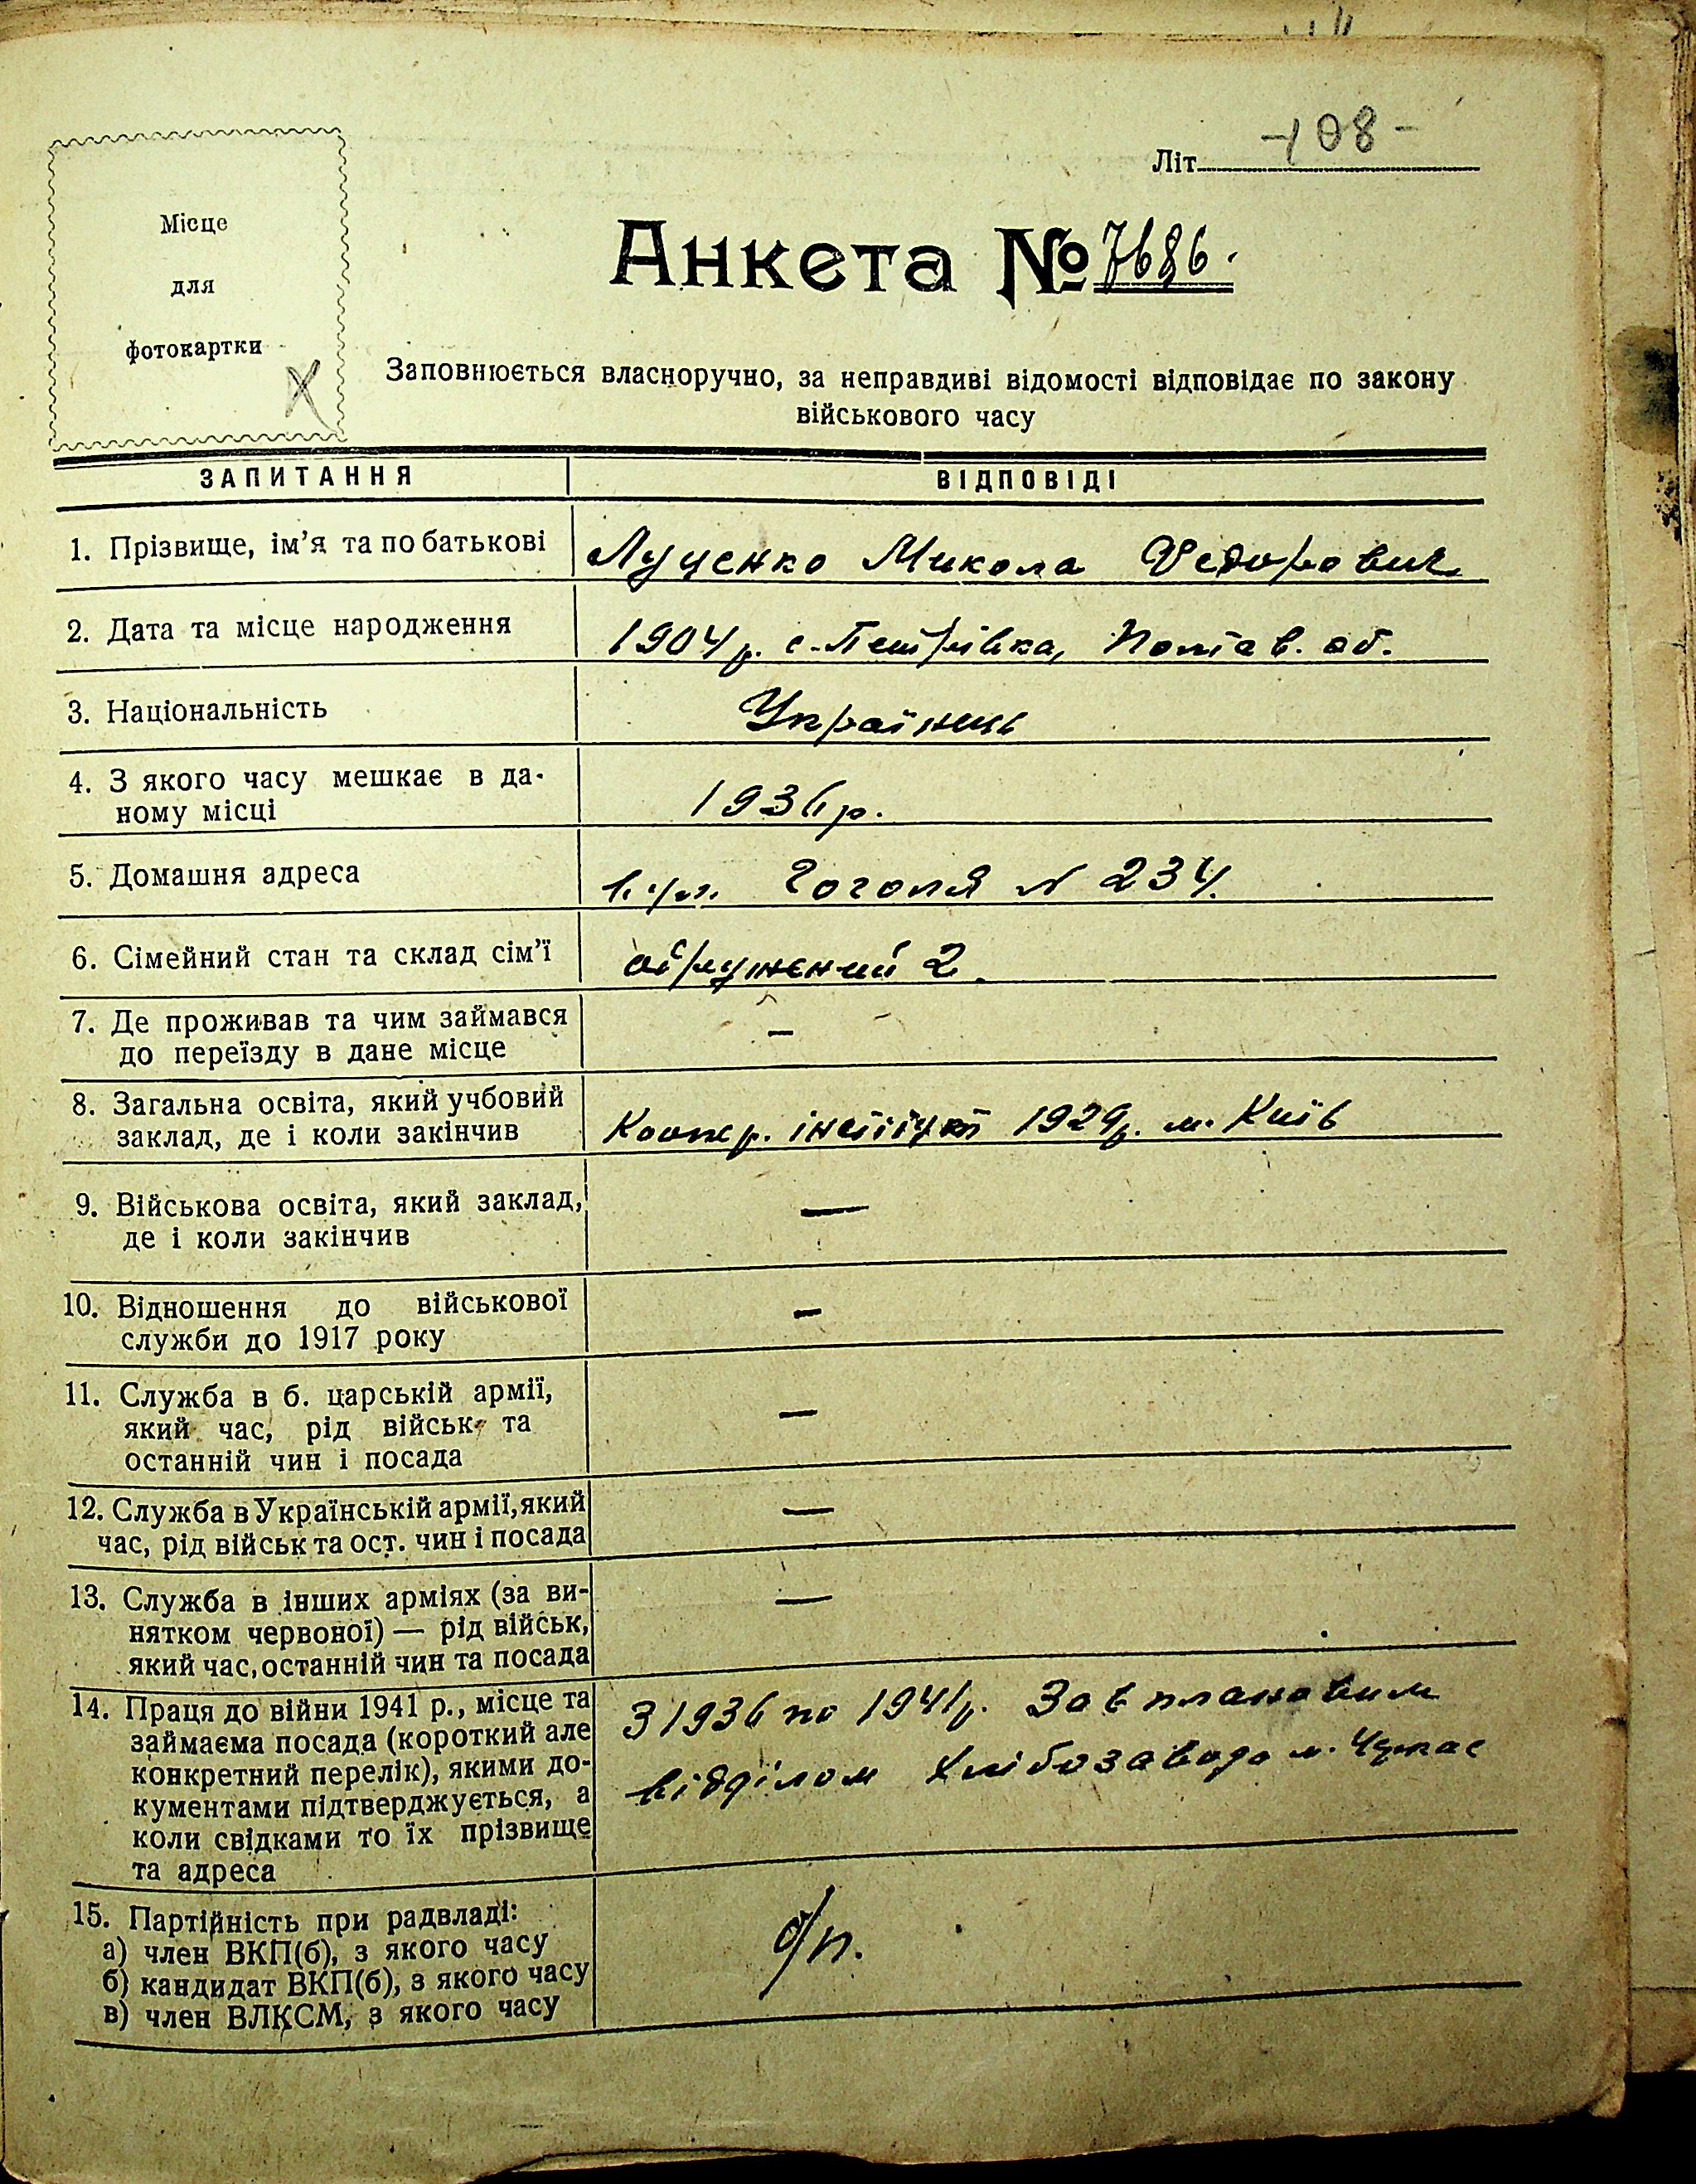 Літ. -108-
Місце
для
фотокартки
Анкета № 7686.
Заповнюється власноручно, за неправдиві відомості відповідає по закону
військового часу
ЗАПИТАННЯ ВІДПОВІДІ
1. Прізвище, ім'я та по батькові Луценко Микола Федорович
2. Дата та місце народження 1904 р. с. Петрівка, Полтав. об.
3. Національність Українець
4. З якого часу мешкає в да-
ному місці 1936 р.
5. Домашня адреса вул. Гоголя N 234.
6. Сімейний стан та склад сім'ї одружений 2.
7. Де проживав та чим займався —
до переїзду в дане місце
8. Загальна освіта, який учбовий
заклад, де і коли закінчив Коопер. інстітут 1929 р. м. Київ
9. Військова освіта, який заклад, —
де і коли закінчив
10. Відношення до військової —
служби до 1917 року
11. Служба в б. царській армії,
який час, рід військ та —
останній чин і посада
12. Служба в Українській армії, який —
час, рід військ та ост. чин і посада
13. Служба в інших арміях (за ви- —
нятком червоної) — рід військ,
який час, останній чин та посада
14. Праця до війни 1941 р., місце та З 1936 по 1941 р. Зав плановим
займаєма посада (короткий але відділом Хлібозавода м.
конкретний перелік), якими до-
кументами підтверджується, а
коли свідками то їх прізвище
та адреса
15. Партійність при радвладі:
а) член ВКП(б), з якого часу б/п.
б) кандидат ВКП(б), з якого часу
в) член ВЛКСМ, з якого часу